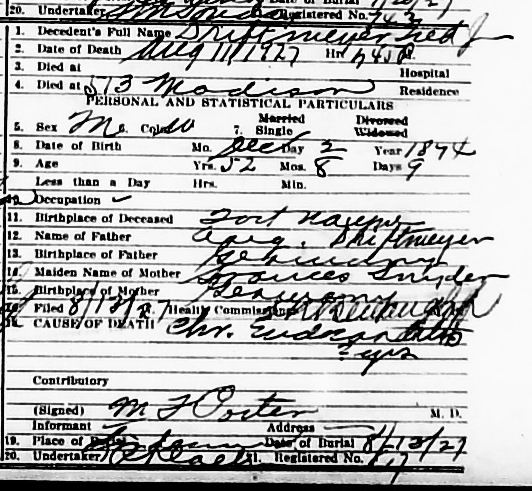 20. Undertaker Registered No. 743
1. Decedent's Full Name Driftmeyer Fred J
2. Date of Death Aug 11/1927 Hr. 745 P M.
3. Died at Hospital
4. Died at 513 Madison Residence
PERSONAL AND STATISTICAL PARTICULARS
5. Sex M Color W 7. Married Single Divorced Widowed
8. Date of Birth Mo. Dec Day 2 Year 1874
9. Age Yrs. 52 Mos. 8 Days 9
Less than a Day Hrs. Min.
10. Occupation
11. Birthplace of Deceased Fort Wayne
12. Name of Father Driftmeyer
13. Birthplace of Father Germany
14. Maiden Name of Mother Frances Snyder
15. Birthplace of Mother Germany
Filed 8/13/27 Health Commissioner
CAUSE OF DEATH Chr. Endocarditis
yrs
Contributory
(Signed) M F Porter M. D.
Informant Address
19. Place of Burial Date of Burial 8/13/27
20. Undertaker 21. Registered No.